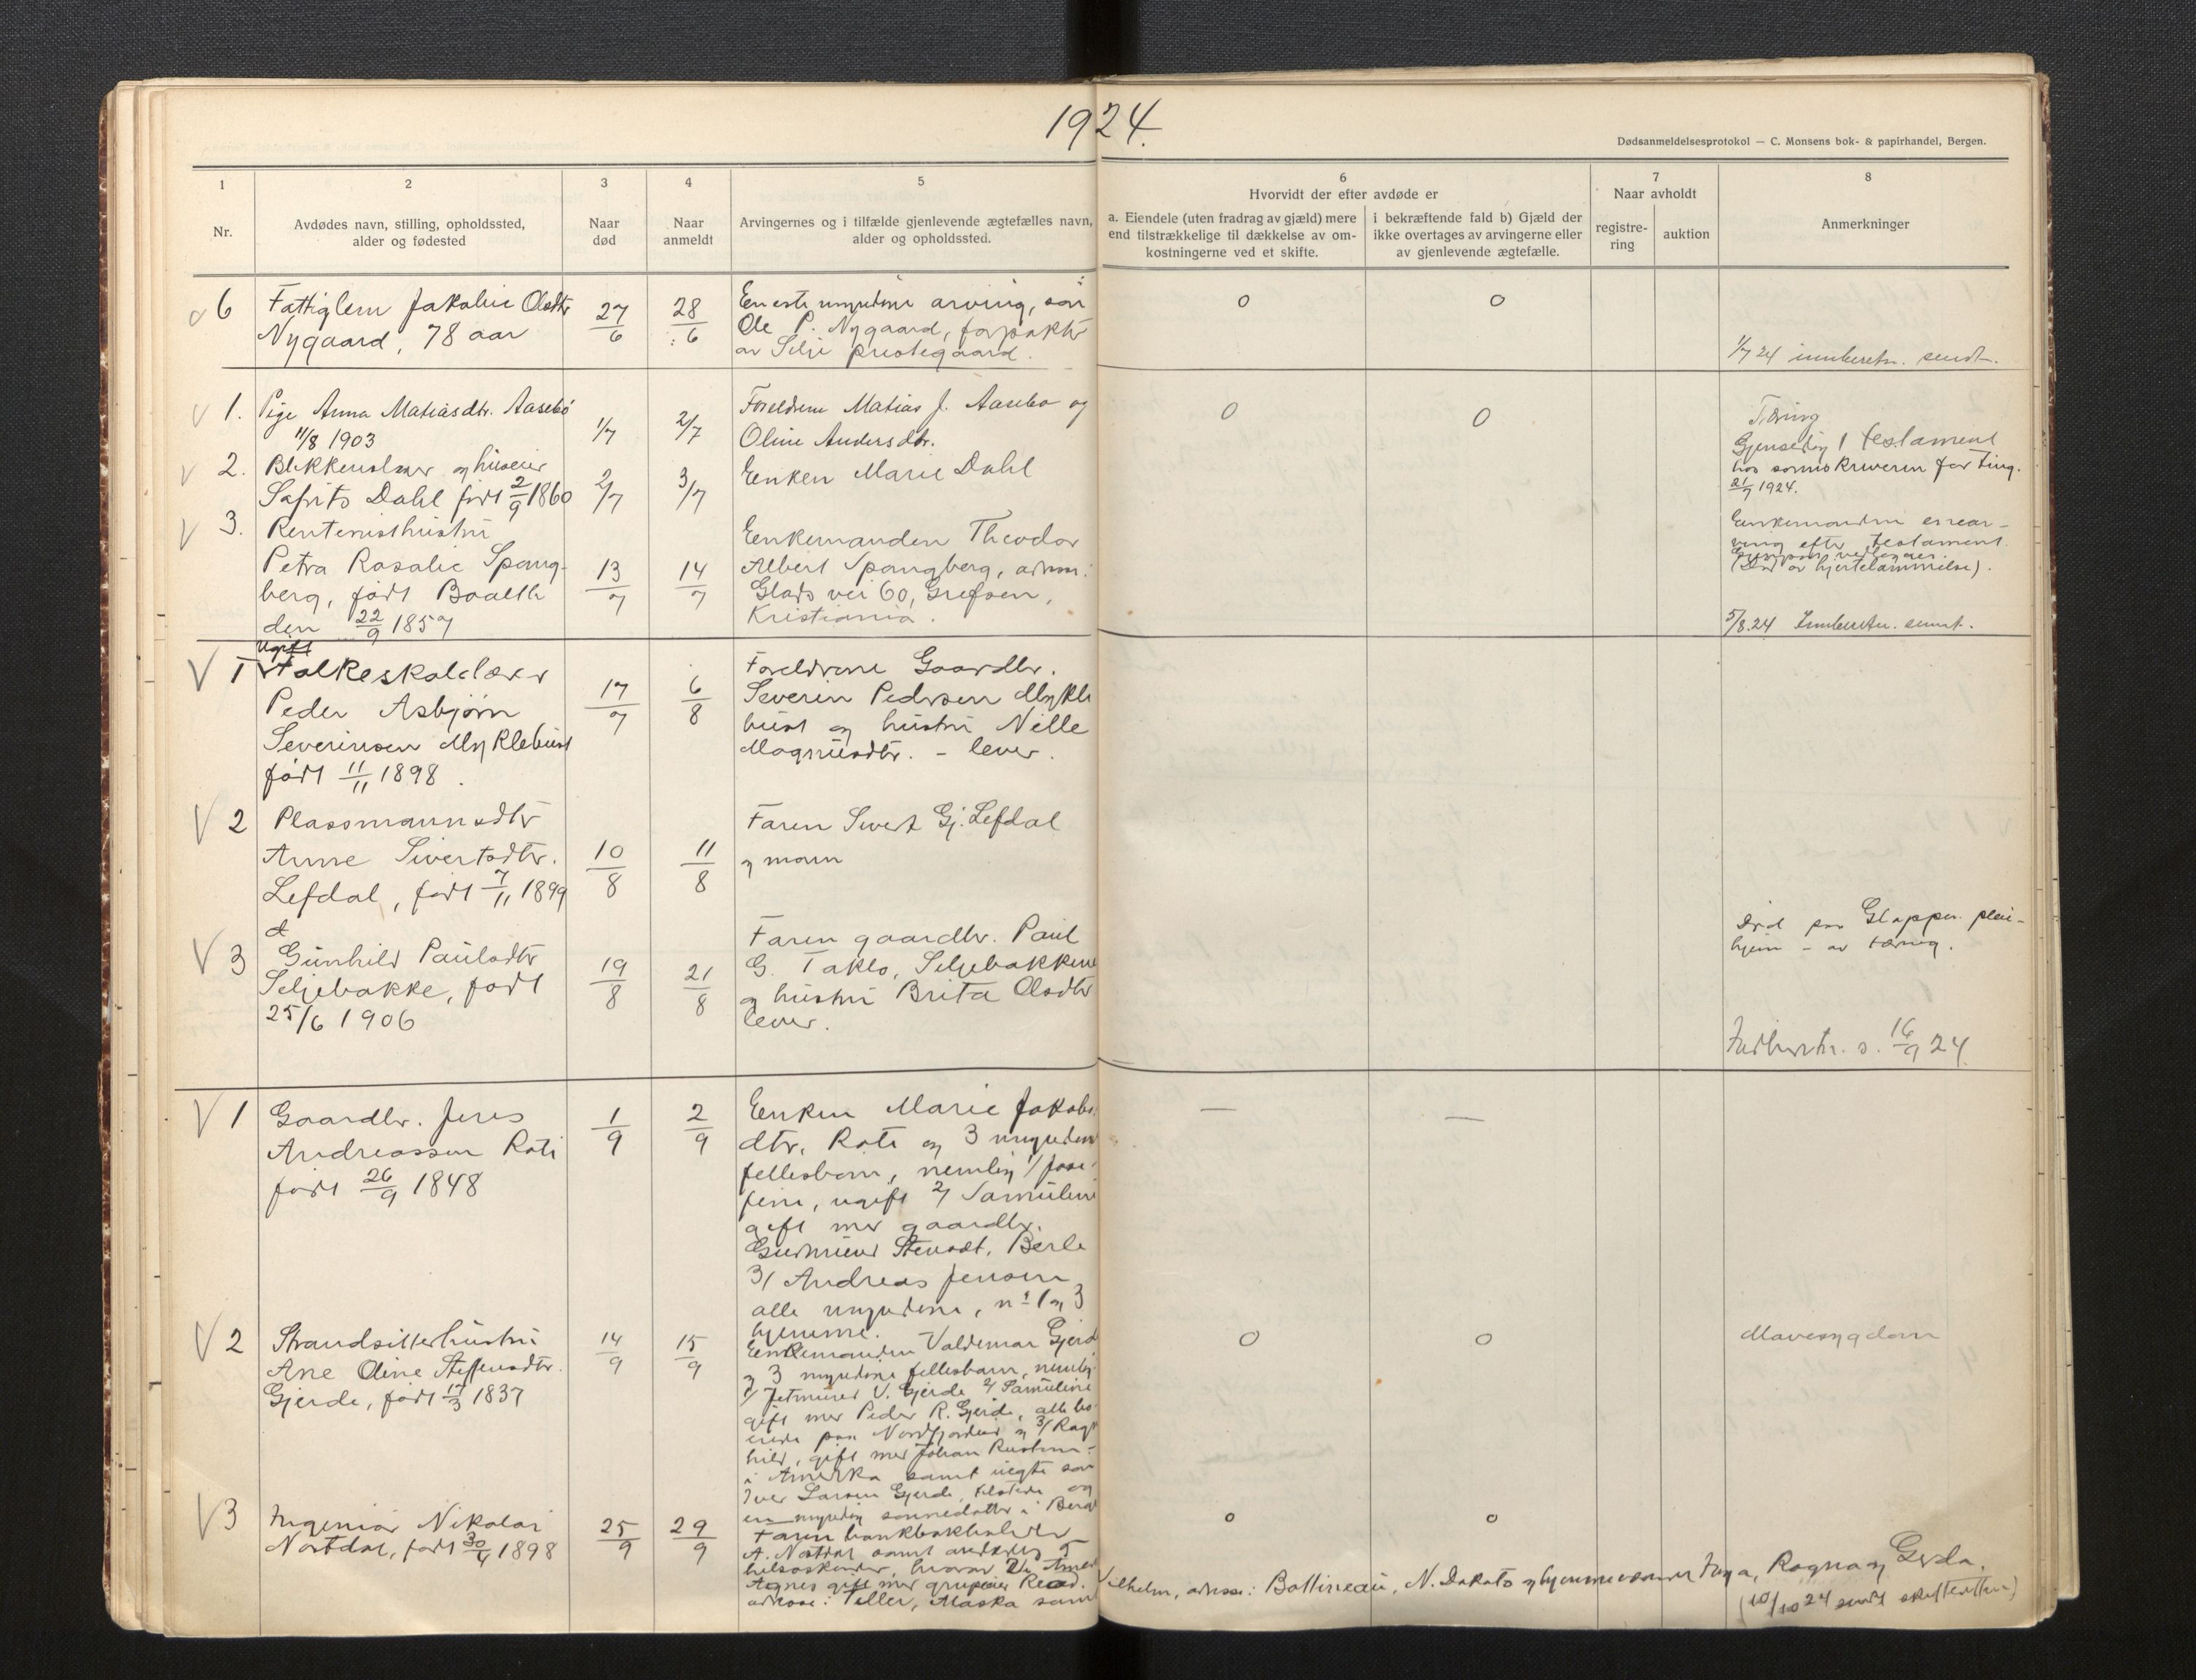 1924.
Dødsanmeldelsesprotokol — C. Monsens bok- & papirhandel, Bergen.
1
Nr.
2
Avdødes navn, stilling, opholdssted,
alder og fødested
3
Naar
død
4
Naar
anmeldt
5
Arvingernes og i tilfælde gjenlevende ægtefælles navn,
alder og opholdssted.
6
Hvorvidt der efter avdøde er
a. Eiendele (uten fradrag av gjæld) mere
end tilstrækkelige til dækkelse av om-
kostningerne ved et skifte.
i bekræftende fald b) Gjæld der
ikke overtages av arvingerne eller
av gjenlevende ægtefælle.
7
Naar avholdt
registre-
ring
auktion
8
Anmerkninger
6
Fattiglem Jakobie Olsdtr
Nygaard, 78 aar
27/6
28/6
Eneste myndige arving, søn
Ole P. Nygaard, forpakter
av Selje prestegaard.
0
0
1/7 24 innberetn. sendt.
1.
Pige Anna Matiasdtr. Aasebø
11/8 1903
1/7
2/7
Foreldrene Matias J. Aasebø og
Oline Andersdtr.
0
0
Tæring
2.
Blikkenslager og huseier
Safrits Dahl født 2/9 1860
2/7
3/7
Enken Marie Dahl
Gjensidig testament
hos sorenskriveren for ting.
21/7 1924.
3.
Rentenisthustru
Petra Rosalie Spang-
berg, født Baalth
den 22/9 1857
13/7
14/7
Enkemanden Theodor
Albert Spangberg, adress:
Glads vei 60, Grefsen,
Kristiania.
Enkemanden
efter testament
(Død av hjertelammelse).
5/8.24 Innberetn. sendt.
1
Ugift
Folkeskolelærer
Peder Asbjørn
Severinsen Myklebust
født 11/11 1898.
17/7
6/8
Foreldrene Gaardbr.
Severin Pedersen Mykle
bust og hustru Nille
Magnusdtr. - lever.
2
Plassmannsdtr
Anne Sivertsdtr.
Lefdal, født 7/11 1899
10/8
11/8
Faren Sivert Gj. Lefdal
og moren
3
Gunhild Paulsdtr
Seljebakke, født
25/6 1906
19/8
21/8
Faren gaardbr. Paul
G. Taklo, Seljebakkene
og hustru Brita Olsdtr
lever.
Død paa pleie-
hjem - av tæring.
Indberetn. s. 16/9 24
1
Gaardbr. Jens
Andreassen Rote
født 26/9 1848
1/9
2/9
Enken Marie Jakobs
dtr. Rote og 3 myndige
fellesbarn, nemlig 1/ Jose-
fine, ugift 2/ Samuline
gift med gaardbr.
Berle
3/ Andreas Jensen
alle myndige, nr 1 og 3
hjemme.
—
—
2
Strandsitterhustru
Ane Oline Steffensdtr.
Gjerde, født 17/3 1837
14/9
15/9
Enkemanden Valdemar Gjerde
og 3 myndige fellesbarn, nemlig
1/ V. Gjerde 2/ Samuline
gift med Peder R. Gjerde, alle bo-
ende paa Nordfjordeid og 3/ Ragn
hild, gift med Johan
i Amerika samt uegte søn
Iver Larsen Gjerde, og
en myndig sønnedatter i Bergen
0
0
Mavesygdom
3
Ingeniør Nikolai
Nordal, født 30/4 1898
25/9
29/9
Faren bankbokholder
A. Nordal samt 5
helsøskende, hvorav
Agnes gift med Read.
adresse: Teller, Alaska samt
Vilhelm, adresse: Bottineau, N. Dakota og hjemmeværende Inga, Ragna og Gerda.
0
0
(10/10 24 sendt skifteretten)